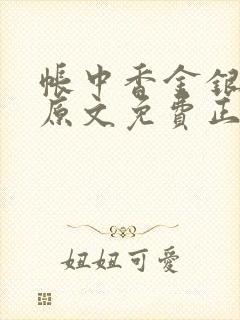 帳中香金銀
原文免費正
妞妞可愛